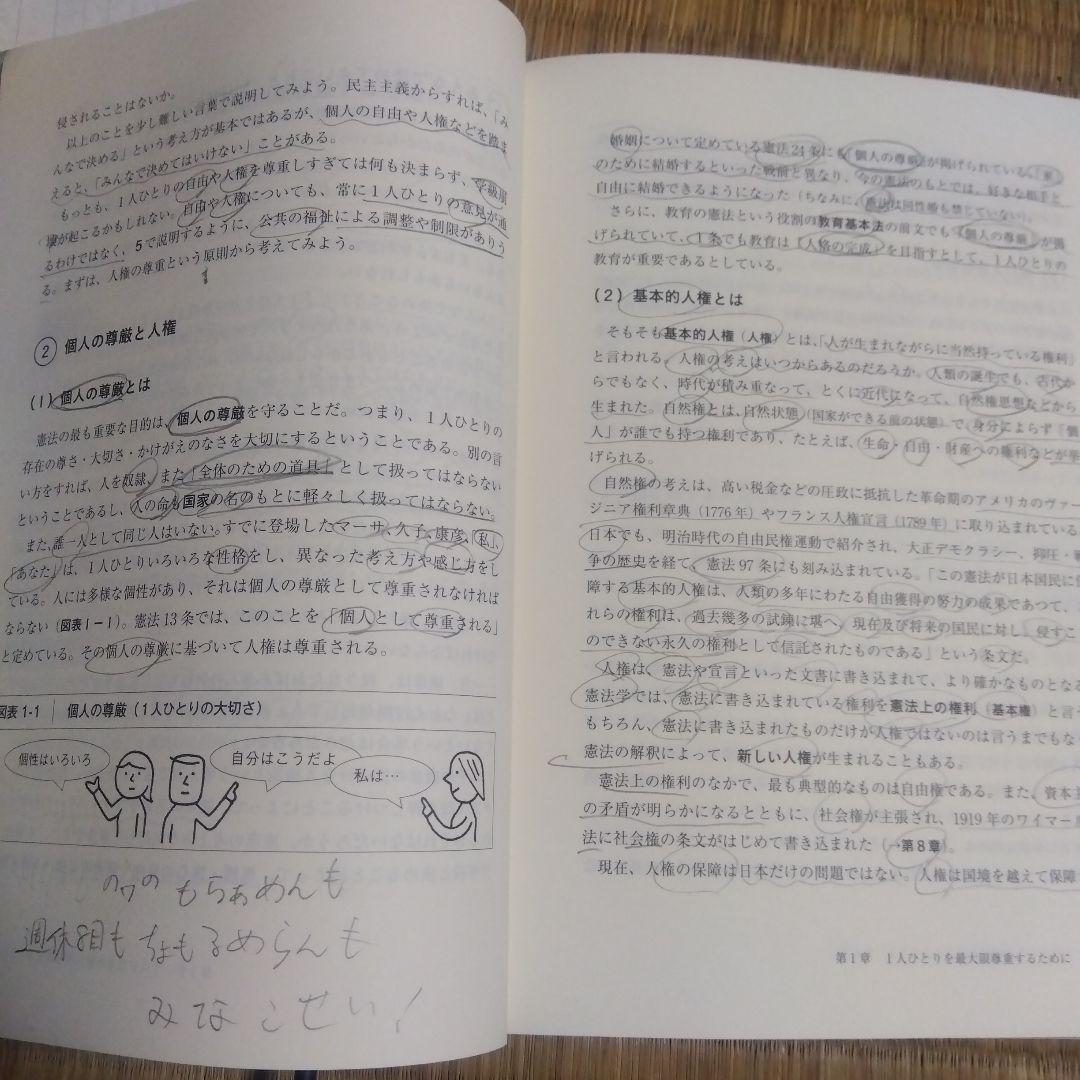 侵されることはないか。
以上のことを少し難しい言葉で説明してみよう。民主主義からすれば、「み
んなで決める」という考え方が基本ではあるが、個人の自由や人権などを踏ま
えると、「みんなで決めてはいけない」ことがある。
もっとも、1人ひとりの自由や人権を尊重しすぎては何も決まらず、学級崩
壊が起こるかもしれない。自由や人権についても、常に1人ひとりの意見が通
るわけではなく、5で説明するように、公共の福祉による調整や制限がありう
る。まずは、人権の尊重という原則から考えてみよう。
② 個人の尊厳と人権
(1) 個人の尊厳とは
憲法の最も重要な目的は、個人の尊厳を守ることだ。つまり、1人ひとりの
存在の尊さ・大切さ・かけがえのなさを大切にするということである。別の言
い方をすれば、人を奴隷、また「全体のための道具」として扱ってはならない
ということであるし、人の命も国家の名のもとに軽々しく扱ってはならない。
また、誰一人として同じ人はいない。すでに登場したマーサ、久子、康彦、「私」、
「あなた」は、1人ひとりいろいろな性格をし、異なった考え方や感じ方をし
ている。人には多様な個性があり、それは個人の尊厳として尊重されなければ
ならない（図表1-1）。憲法13条では、このことを「個人として尊重される」
と定めている。その個人の尊厳に基づいて人権は尊重される。
図表1-1 個人の尊厳（1人ひとりの大切さ）
個性はいろいろ
自分はこうだよ
私は…
のワの もらぁめんも
週休8日も ちょもらめらんも
みなこせい！
婚姻について定めている憲法24条にも「個人の尊厳」が掲げられている。「家」
のために結婚するといった戦前と異なり、今の憲法のもとでは、好きな相手と
自由に結婚できるようになった（ちなみに、憲法は同性婚も禁じていない）。
さらに、教育の憲法という役割の教育基本法の前文でも「個人の尊厳」が掲
げられていて、1条でも教育は「人格の完成」を目指すとして、1人ひとりの
教育が重要であるとしている。
(2) 基本的人権とは
そもそも基本的人権（人権）とは、「人が生まれながらに当然持っている権利」
と言われる。人権の考えはいつからあるのだろうか。人類の誕生でも、古代か
らでもなく、時代が積み重なって、とくに近代になって、自然権思想などから
生まれた。自然権とは、自然状態（国家ができる前の状態）で、身分によらず「個
人」が誰でも持つ権利であり、たとえば、生命・自由・財産への権利などが挙
げられる。
自然権の考えは、高い税金などの圧政に抵抗した革命期のアメリカのヴァー
ジニア権利章典（1776年）やフランス人権宣言（1789年）に取り込まれている
日本でも、明治時代の自由民権運動で紹介され、大正デモクラシー、抑圧・戦
争の歴史を経て、憲法97条にも刻み込まれている。「この憲法が日本国民に保
障する基本的人権は、人類の多年にわたる自由獲得の努力の成果であつて、
れらの権利は、過去幾多の試錬に堪へ、現在及び将来の国民に対し、侵すこ
のできない永久の権利として信託されたものである」という条文だ。
人権は、憲法や宣言といった文書に書き込まれて、より確かなものとなる
憲法学では、憲法に書き込まれている権利を憲法上の権利（基本権）と言う
もちろん、憲法に書き込まれたものだけが人権ではないのは言うまでもな
憲法の解釈によって、新しい人権が生まれることもある。
憲法上の権利のなかで、最も典型的なものは自由権である。また、資本主
の矛盾が明らかになるとともに、社会権が主張され、1919年のワイマール
法に社会権の条文がはじめて書き込まれた（→第8章）。
現在、人権の保障は日本だけの問題ではない。人権は国境を越えて保障
第1章 1人ひとりを最大限尊重するために